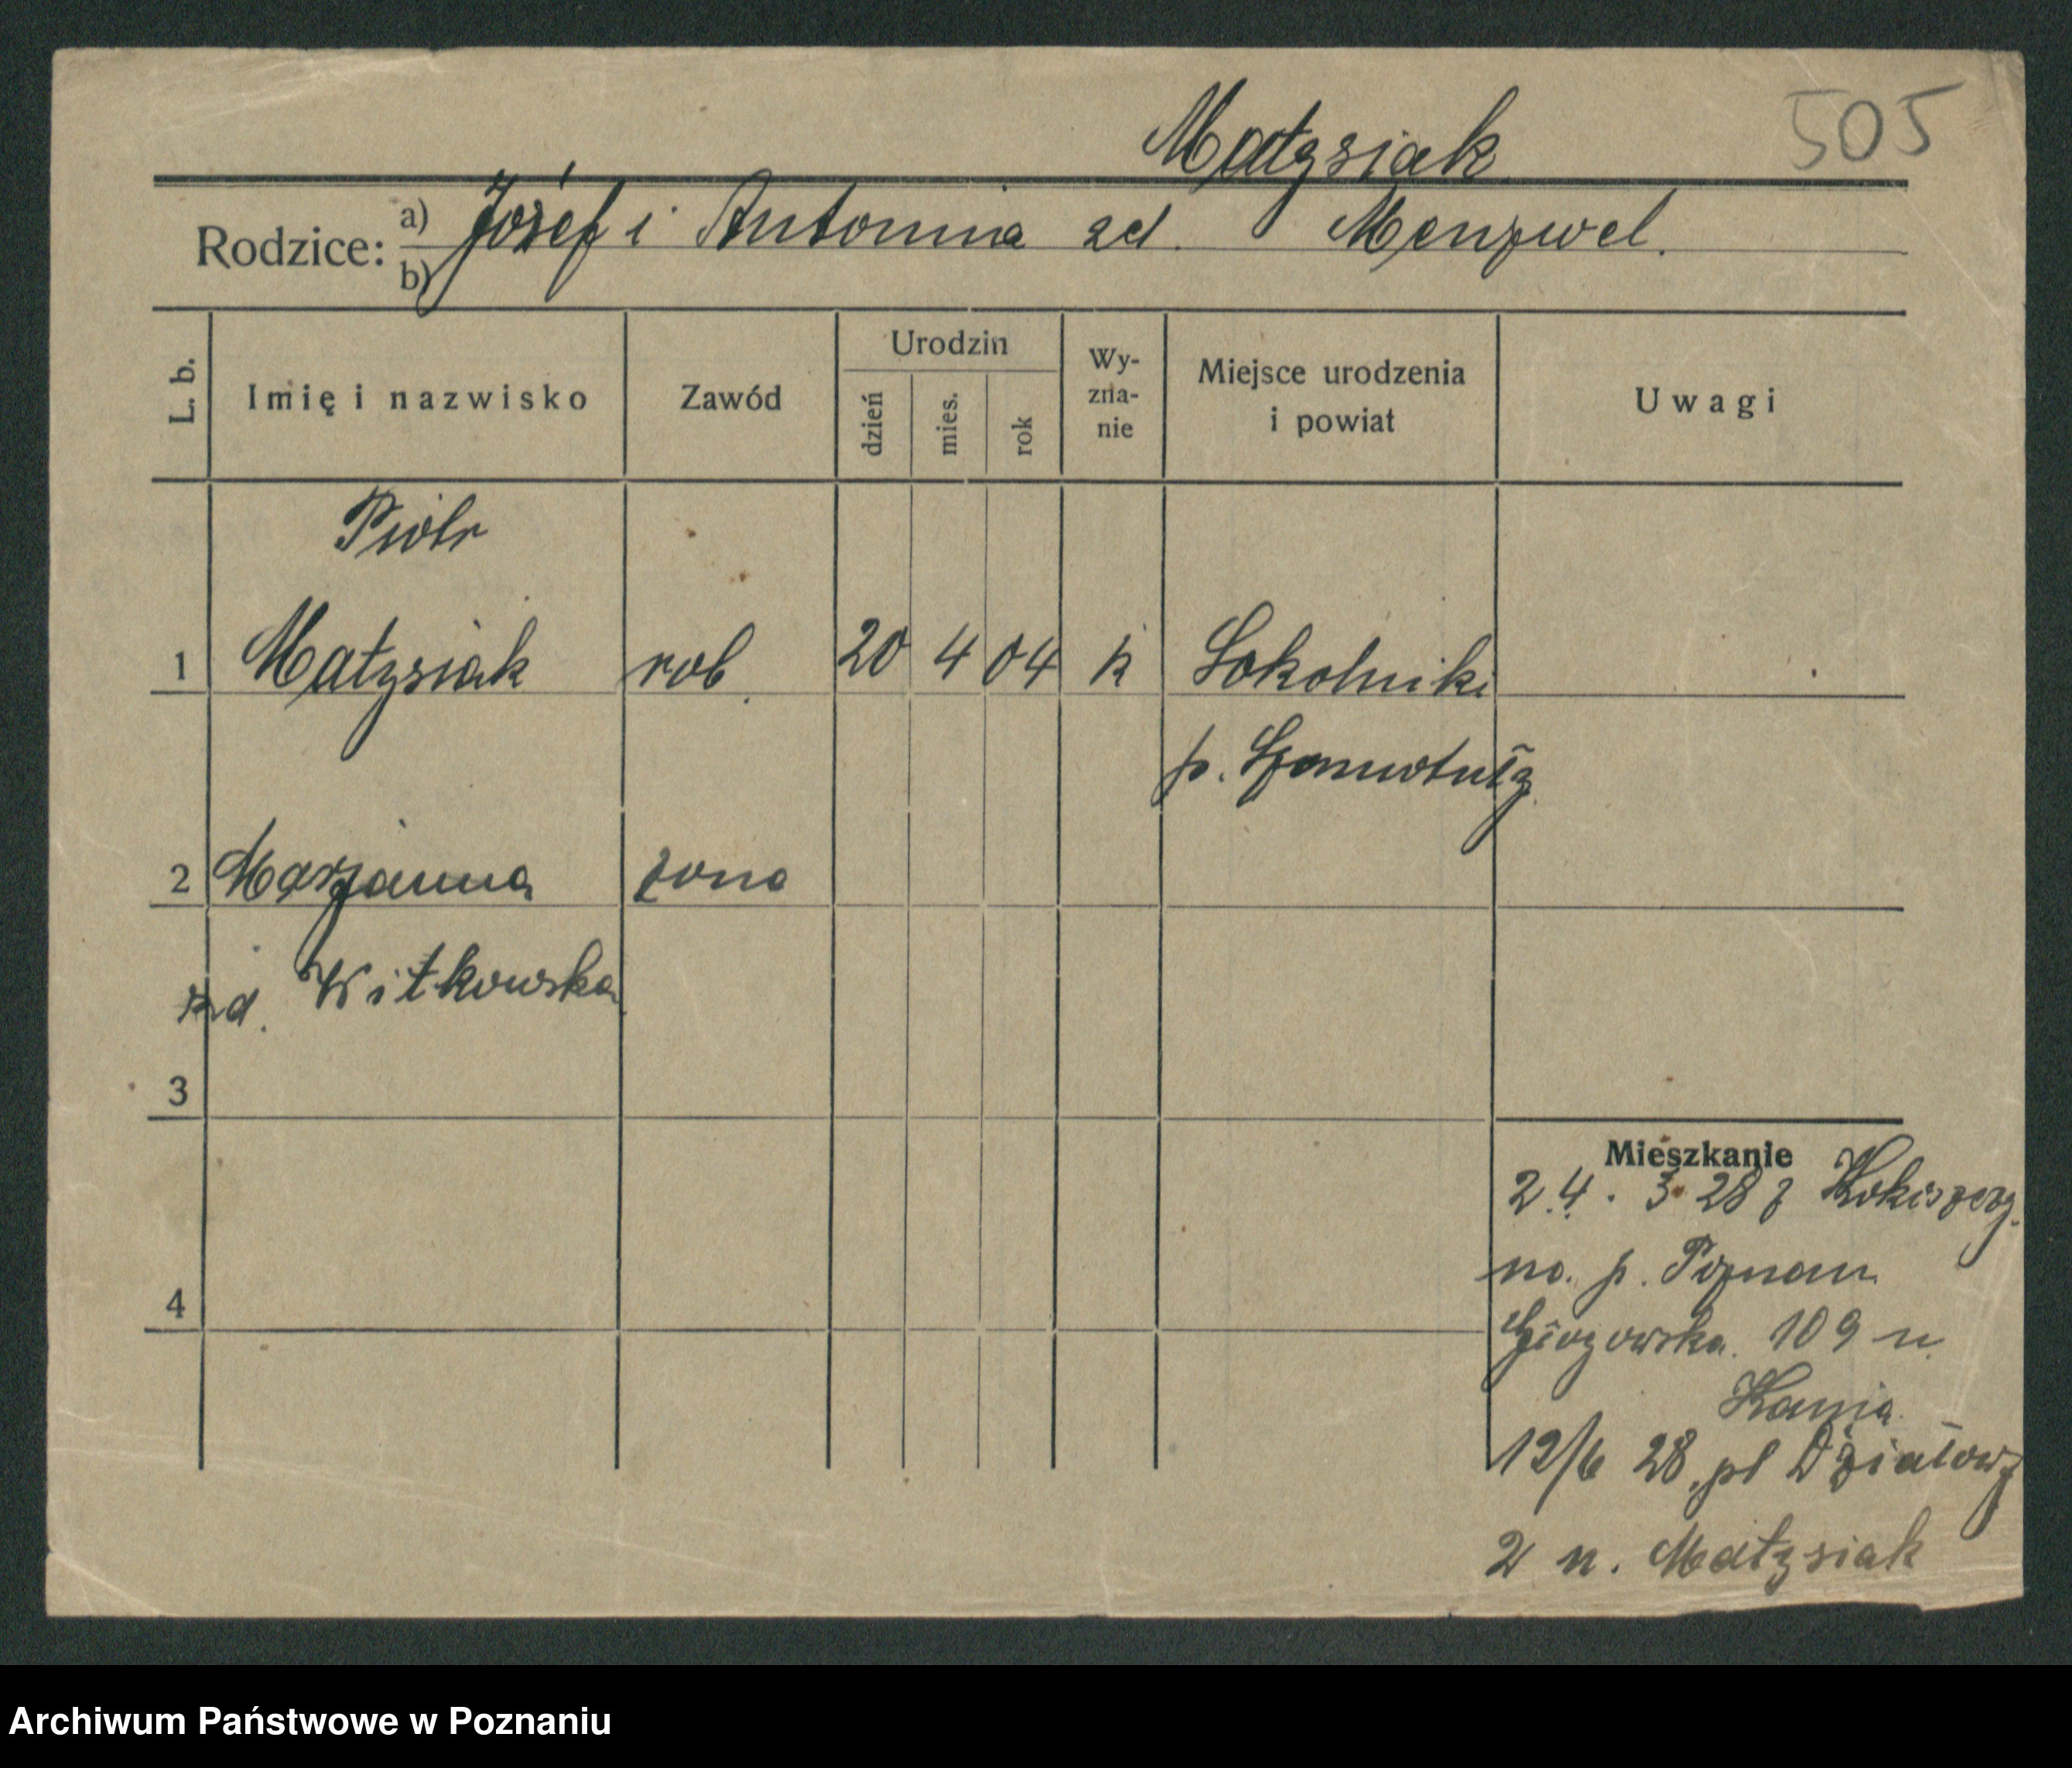 505
Matysiak
Rodzice: a) Józef i Antonina zd. Menzwel.
b)
L. b.
Imię i nazwisko
Zawód
Urodzin
dzień
mies.
rok
Wy-
zna-
nie
Miejsce urodzenia
i powiat
Uwagi
Piotr
1 Matysiak rob. 20 4 04 k Sokolniki
p. Szamotuły
2 Marjanna żona
zd. Witkowska
3
Mieszkanie
24. 3. 28 z Kokiszczy
na. p. Poznan
4
109 n.
Kania
12/6 28. pl Działowy
2 n. Matysiak
Archiwum Państwowe w Poznaniu